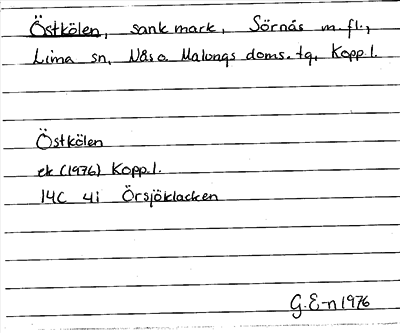 Östkölen, sank mark, Sörnäs m.fl.,
Lima sn, Nås o. Malungs doms.tg, Kopp.l.
Östkölen
ek (1976) Kopp.l.
14C 4i Örsjöklacken
G.E-n 1976